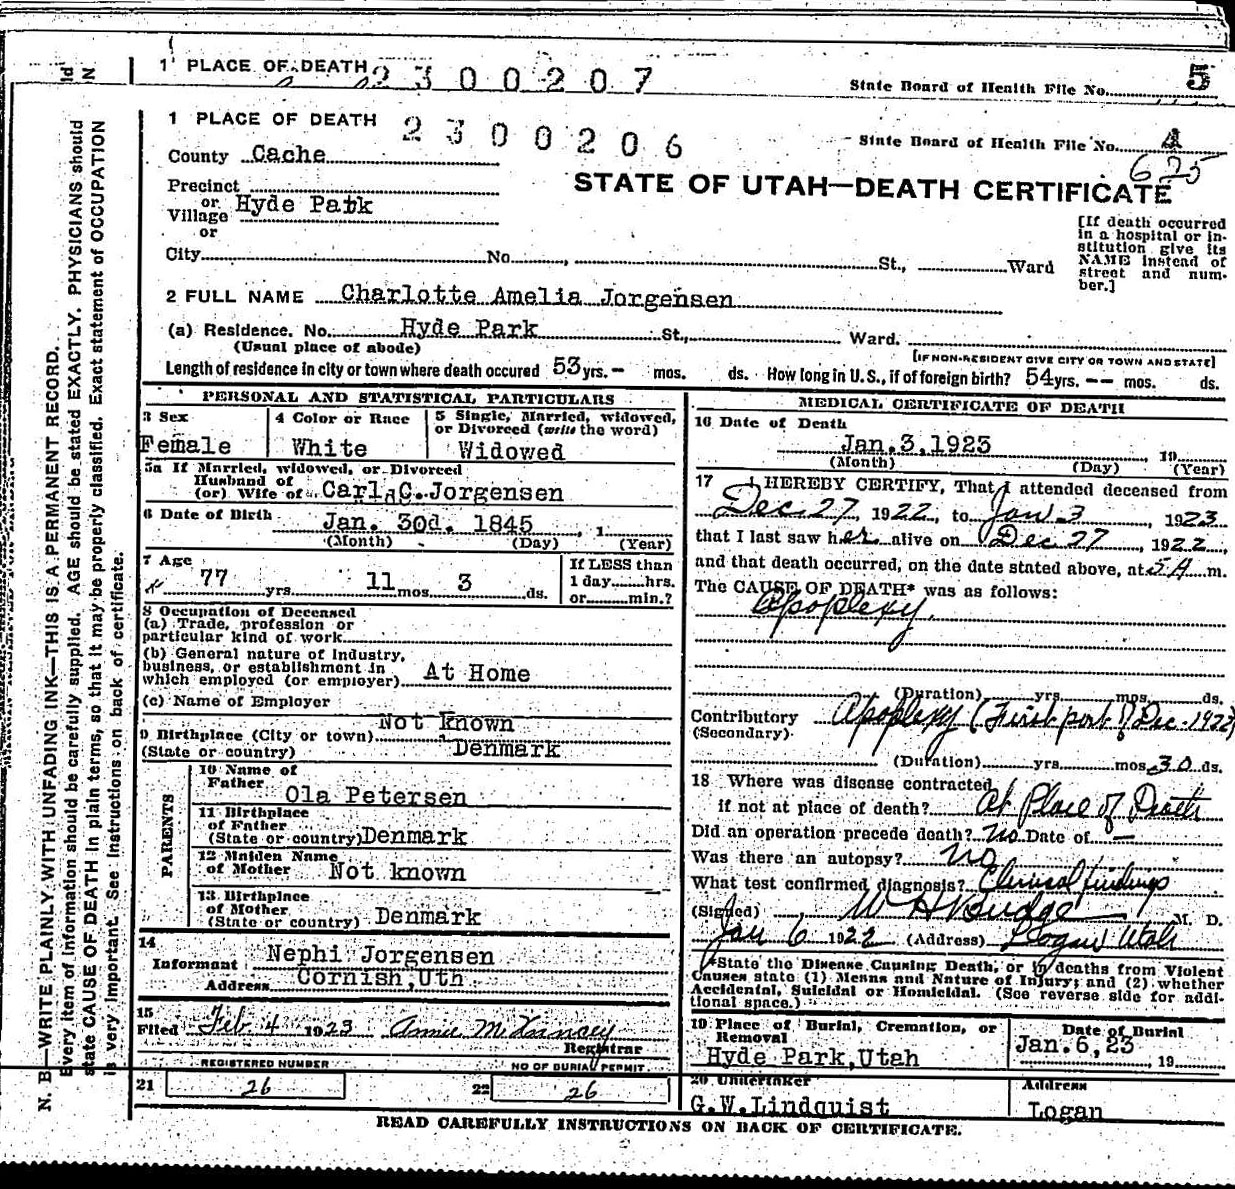 1 PLACE OF DEATH 2300207 State Board of Health File No. 5
1 PLACE OF DEATH 2300206 State Board of Health File No. 4
625
County Cache
STATE OF UTAH—DEATH CERTIFICATE
Precinct
or
Village Hyde Park
or
City No. St., Ward
[If death occurred in a hospital or institution give its NAME instead of street and number.]
2 FULL NAME Charlotte Amelia Jorgensen
(a) Residence. No. Hyde Park St., Ward.
(Usual place of abode) [IF NON-RESIDENT GIVE CITY OR TOWN AND STATE]
Length of residence in city or town where death occured 53 yrs. – mos. ds. How long in U.S., if of foreign birth? 54 yrs. -- mos. ds.
PERSONAL AND STATISTICAL PARTICULARS
3 Sex
Female
4 Color or Race
White
5 Single, Married, widowed, or Divorced (write the word)
Widowed
5a If Married, widowed, or Divorced
Husband of
(or) Wife of Carl C. Jorgensen
6 Date of Birth Jan. 30d. 1845, 1
(Month) (Day) (Year)
7 Age
77 yrs. 11 mos. 3 ds.
If LESS than
1 day hrs.
or min.?
8 Occupation of Deceased
(a) Trade, profession or
particular kind of work
(b) General nature of Industry,
business, or establishment in
which employed (or employer) At Home
(c) Name of Employer
Not known
9 Birthplace (City or town)
(State or country) Denmark
PARENTS
10 Name of
Father Ola Petersen
11 Birthplace
of Father
(State or country) Denmark
12 Maiden Name
of Mother Not known
13 Birthplace
of Mother
(State or country) Denmark
14
Informant Nephi Jorgensen
Address Cornish, Uth
15
Filed Feb 4 1923 Annie McKinney
Registrar
REGISTERED NUMBER NO OF BURIAL PERMIT
21 26 22 26
MEDICAL CERTIFICATE OF DEATH
16 Date of Death
Jan.3,1923, 19
(Month) (Day) (Year)
17 I HEREBY CERTIFY, That I attended deceased from
Dec 27, 1922, to Jan 3, 1923
that I last saw her alive on Dec 27, 1922,
and that death occurred, on the date stated above, at 5 A m.
The CAUSE OF DEATH* was as follows:
Apoplexy.
(Duration) yrs. mos. ds.
Contributory Apoplexy (First part of Dec. 1922)
(Secondary)
(Duration) yrs. mos. 30 ds.
18 Where was disease contracted
if not at place of death? At Place of Death
Did an operation precede death? no Date of –
Was there an autopsy? no
What test confirmed diagnosis? Clinical findings
(Signed) W H Budge M. D.
Jan 6, 1922 (Address) Logan Utah
*State the Disease Causing Death, or in deaths from Violent
Causes state (1) Means and Nature of Injury; and (2) whether
Accidental, Suicidal or Homicidal. (See reverse side for additional space.)
19 Place of Burial, Cremation, or
Removal
Hyde Park, Utah
Date of Burial
Jan. 6, 23
19
20 Undertaker
G.W. Lindquist
Address
Logan
READ CAREFULLY INSTRUCTIONS ON BACK OF CERTIFICATE.
N. B—WRITE PLAINLY WITH UNFADING INK—THIS IS A PERMANENT RECORD.
Every item of information should be carefully supplied. AGE should be stated EXACTLY. PHYSICIANS should
state CAUSE OF DEATH in plain terms, so that it may be properly classified. Exact statement of OCCUPATION
is very important. See instructions on back of certificate.